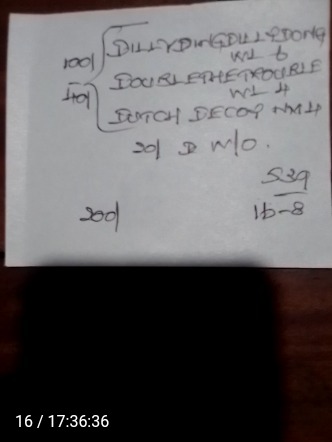 100/
40/
DILLYDINGDILLYDONG
W1 6
DOUBLETHETROUBLE
W1 4
DUTCH DECOY NM4
20/ D W/O.
S39
16-8
200/
16 / 17:36:36